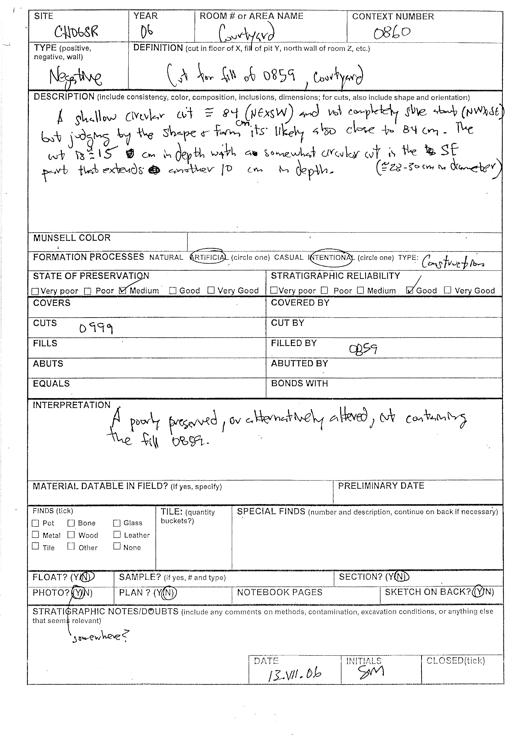 SITE YEAR ROOM # or AREA NAME CONTEXT NUMBER
CH06SR 06 Courtyard 0860
TYPE (positive, negative, wall) DEFINITION (cut in floor of X, fill of pit Y, north wall of room Z, etc.)
Negative Cut for fill of 0859, courtyard
DESCRIPTION (include consistency, color, composition, inclusions, dimensions; for cuts, also include shape and orientation)
A shallow circular cut ≅ 84 (NEXSW) and not completely sure about (NWXSE)
but judging by the shape & form its likely also close to 84 cm. The
cut is ≅15 cm in depth with a somewhat circular cut in the SE
part that extends another 10 cm in depth. (≅28-30cm in diameter)
MUNSELL COLOR
FORMATION PROCESSES NATURAL ARTIFICIAL (circle one) CASUAL INTENTIONAL (circle one) TYPE: Construction
STATE OF PRESERVATION STRATIGRAPHIC RELIABILITY
☐ Very poor ☐ Poor ☑ Medium ☐ Good ☐ Very Good ☐ Very poor ☐ Poor ☐ Medium ☑ Good ☐ Very Good
COVERS COVERED BY
CUTS 0999 CUT BY
FILLS FILLED BY 0859
ABUTS ABUTTED BY
EQUALS BONDS WITH
INTERPRETATION
A poorly preserved, or alternatively altered, cut containing
the fill 0859.
MATERIAL DATABLE IN FIELD? (if yes, specify) PRELIMINARY DATE
FINDS (tick) TILE: (quantity buckets?) SPECIAL FINDS (number and description, continue on back if necessary)
☐ Pot ☐ Bone ☐ Glass
☐ Metal ☐ Wood ☐ Leather
☐ Tile ☐ Other ☐ None
FLOAT? (Y/N) SAMPLE? (if yes, # and type) SECTION? (Y/N)
PHOTO? (Y/N) PLAN? (Y/N) NOTEBOOK PAGES SKETCH ON BACK? (Y/N)
STRATIGRAPHIC NOTES/DOUBTS (include any comments on methods, contamination, excavation conditions, or anything else
that seems relevant)
somewhere?
DATE INITIALS CLOSED(tick)
13.VII.06 SM